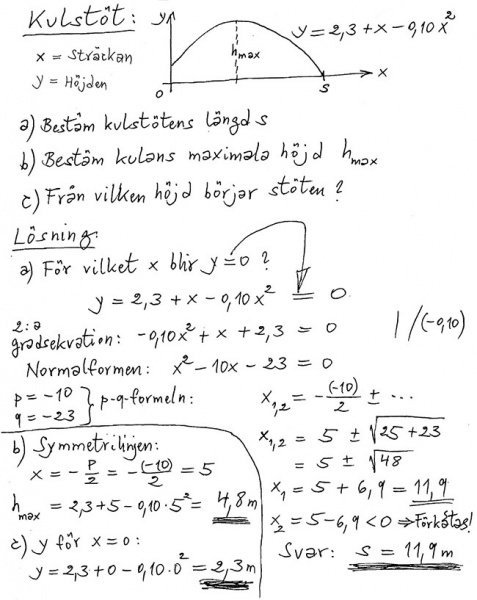 Kulstöt:
y
y = 2,3 + x - 0,10x²
x = Sträckan
y = Höjden
h_max
0
s
x
a) Bestäm kulstötens längd s
b) Bestäm kulans maximala höjd h_max
c) Från vilken höjd börjar stöten?
Lösning:
a) För vilket x blir y = 0?
y = 2,3 + x - 0,10x² = 0
2:a
gradsekvation: -0,10x² + x + 2,3 = 0 | /(-0,10)
Normalformen: x² - 10x - 23 = 0
p = -10
q = -23 } p-q-formeln:
x₁,₂ = -(-10)/2 ± ...
x₁,₂ = 5 ± √(25 + 23)
= 5 ± √48
x₁ = 5 + 6,9 = 11,9
x₂ = 5 - 6,9 < 0 ⇒ Förkastas!
Svar: s = 11,9 m
b) Symmetrilinjen:
x = -p/2 = -(-10)/2 = 5
h_max = 2,3 + 5 - 0,10 · 5² = 4,8 m
c) y för x = 0:
y = 2,3 + 0 - 0,10 · 0² = 2,3 m